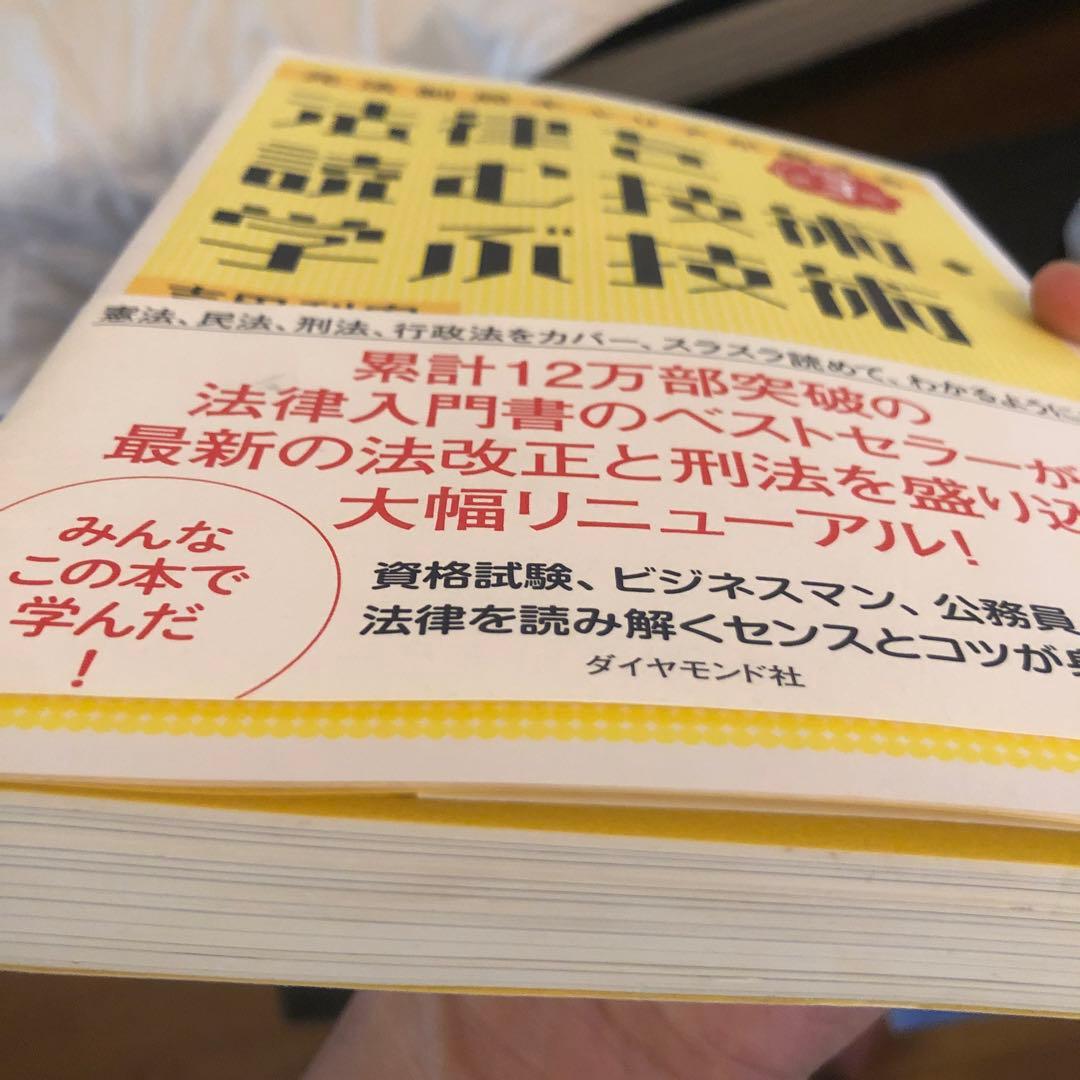 法律を
読む技術・
学ぶ技術
憲法、民法、刑法、行政法をカバー、スラスラ読めて、わかるように
累計12万部突破の
法律入門書のベストセラーが
最新の法改正と刑法を盛り込
大幅リニューアル!
みんな
この本で
学んだ
!
資格試験、ビジネスマン、公務員
法律を読み解くセンスとコツが
ダイヤモンド社